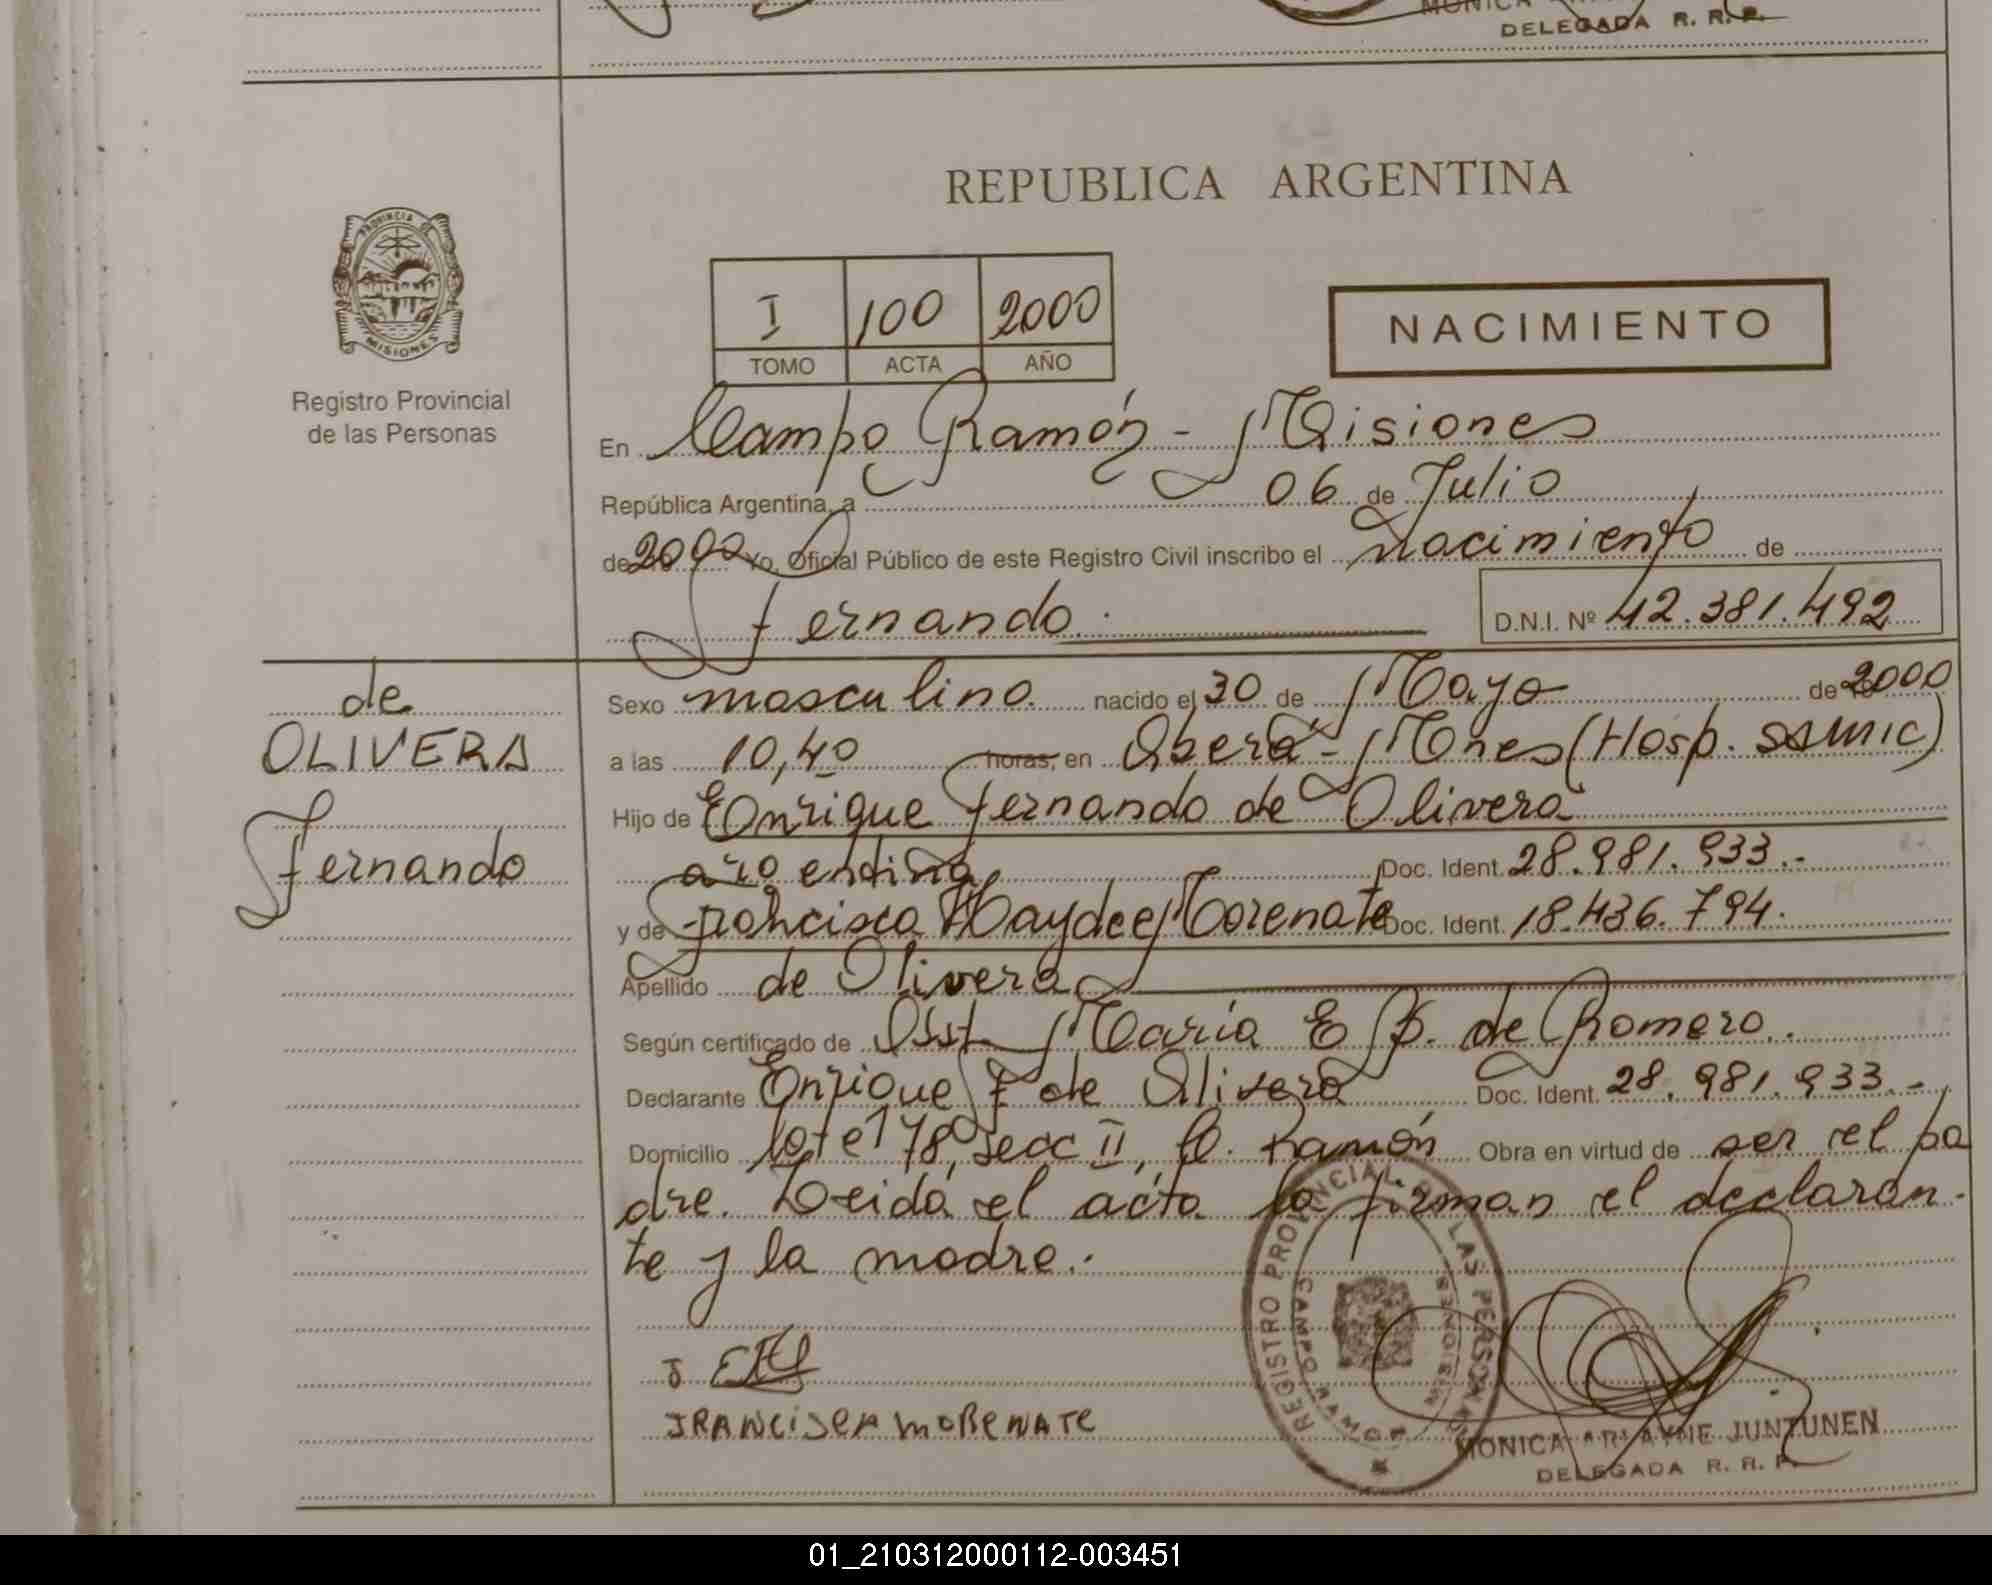 MONICA
DELEGADA R. R. P.
REPUBLICA ARGENTINA
PROVINCIA DE
MISIONES
Registro Provincial
de las Personas
I 100 2000
TOMO ACTA AÑO
NACIMIENTO
En Campo Ramón - Misiones
República Argentina, a 06 de Julio
de 2000 Yo, Oficial Público de este Registro Civil inscribo el nacimiento de
Fernando.
D.N.I. Nº 42.381.492
de
OLIVERA
Fernando
Sexo masculino. nacido el 30 de Mayo de 2000
a las 10,40 horas, en Oberá - Mnes (Hosp. SAMIC)
Hijo de Enrique Fernando de Olivera
argentina Doc. Ident. 28.981.933.-
y de Francisca Haydee Morenate Doc. Ident. 18.436.794.
Apellido de Olivera
Según certificado de Obst María E B. de Romero.
Declarante Enrique F de Olivera Doc. Ident. 28.981.933.-
Domicilio lote 178, secc II, C. Ramón Obra en virtud de ser el pa
dre. Leida el acta la firman el declaran-
te y la madre.
FRANCISCA MORENATE
REGISTRO PROVINCIAL DE LAS PERSONAS
CAMPO RAMON MISIONES
MONICA ARIAYNE JUNTUNEN
DELEGADA R. R. P.
01_210312000112-003451